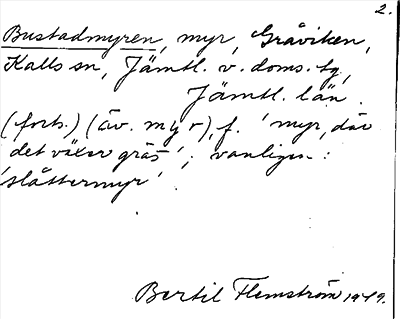 2.
Bustadmyren, myr, Gråviken,
Kalls sn, Jämtl. v. doms. tg,
Jämtl. län.
(forts.) (äv. myr), f. 'myr, där
det växer gräs'; vanligen:
'slåttermyr'.
Bertil Flemström 1949.